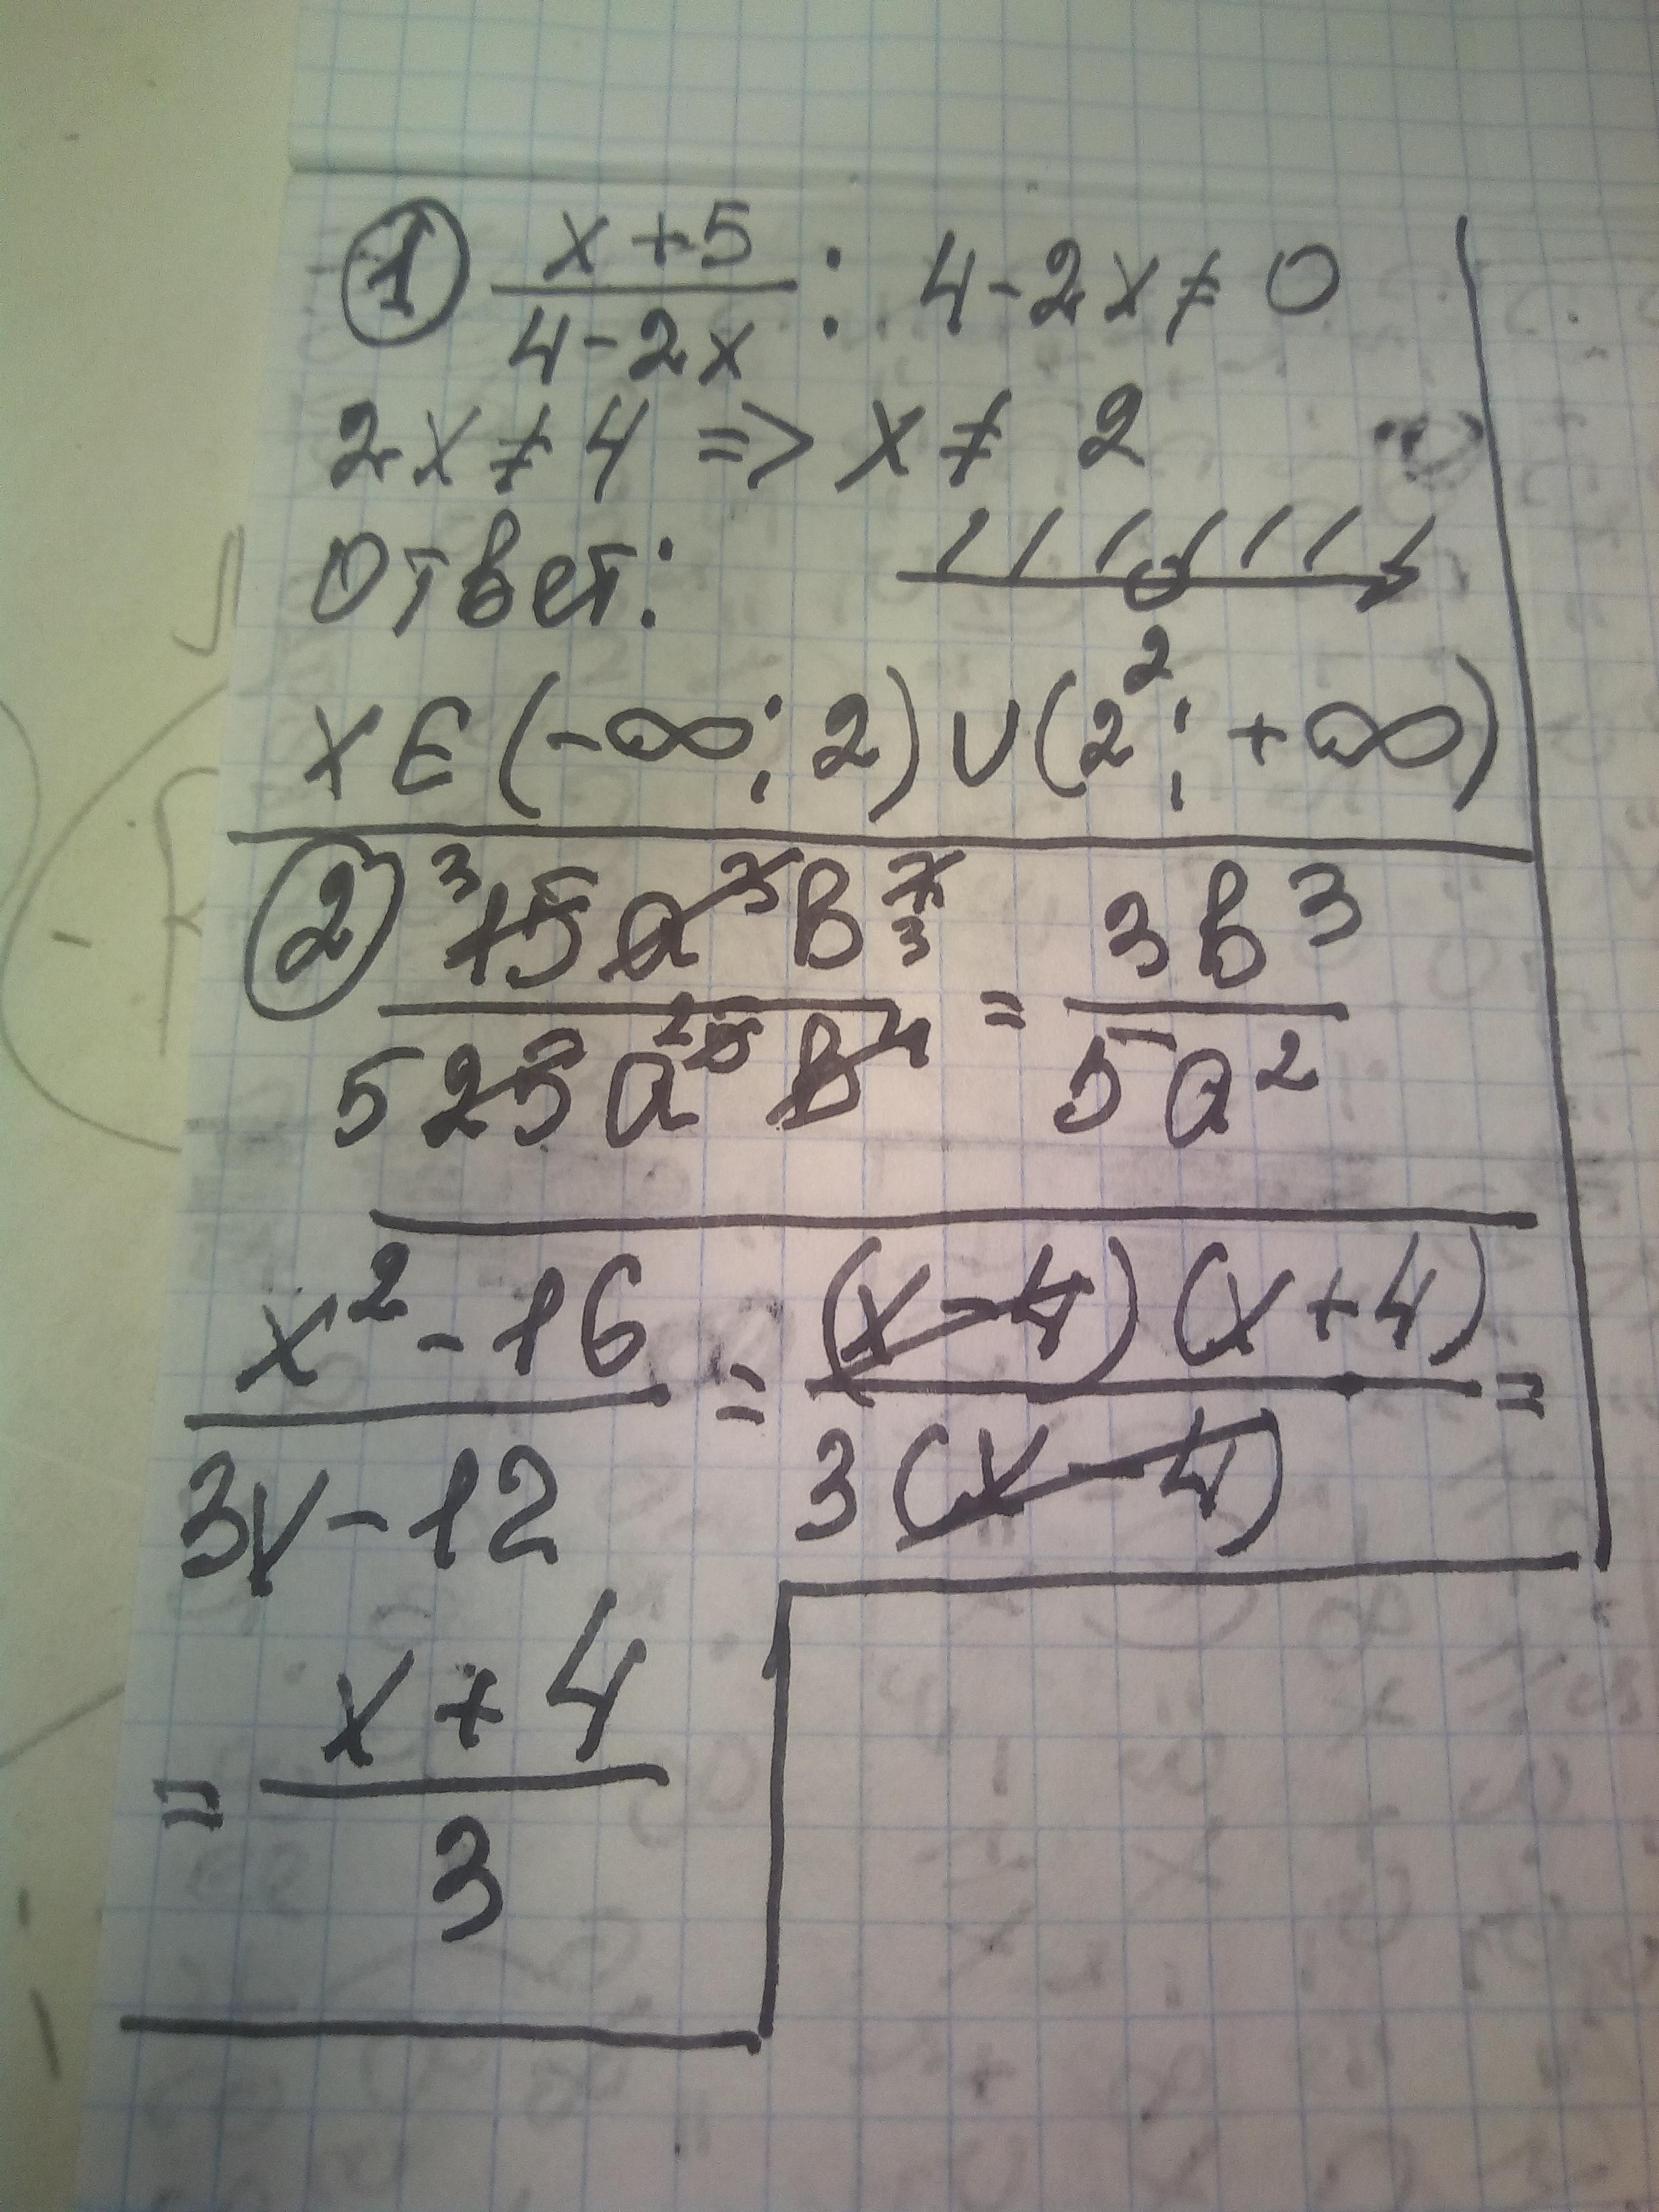 ① x+5 / 4-2x : 4-2x ≠ 0
2x ≠ 4 => x ≠ 2
Ответ:
2
x ∈ (-∞; 2) ∪ (2; +∞)
② 15a³b⁷ / 25a⁵b⁴ = 3b³ / 5a²
x² - 16 / 3x - 12 = (x-4)(x+4) / 3(x-4) =
= x+4 / 3